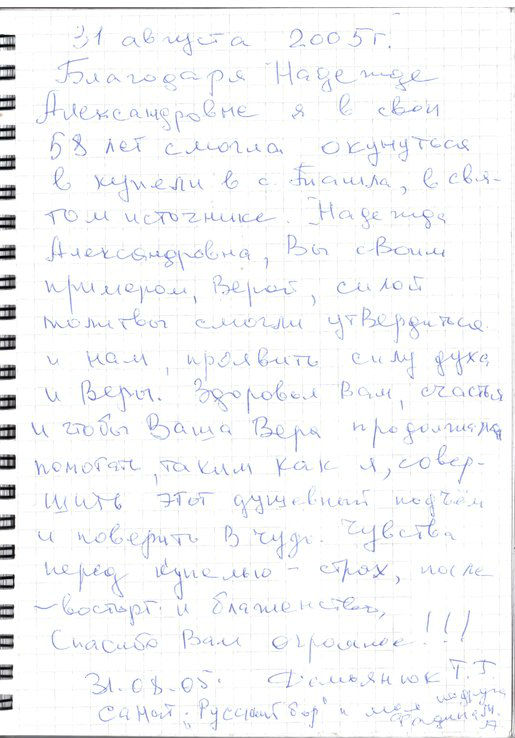 31 августа 2005г.
Благодаря Надежде
Александровне я в свои
58 лет смогла окунуться
в купели в с. Ташла, в свя-
том источнике. Надежда
Александровна, Вы своим
примером, Верой, силой
молитвы смогли утвердиться
и нам, проявить силу духа
и Веры. Здоровья Вам, счастья
и чтобы Ваша Вера продолжала
помогать, таким как я, совер-
шить этот душевный подъём
и поверить в чудо. Чувства
перед купелью – страх, после
– восторг и блаженство,
Спасибо Вам огромное!!!
31.08.05. Демьянюк Т.Г.
санат. "Русский бор" и моя подруга